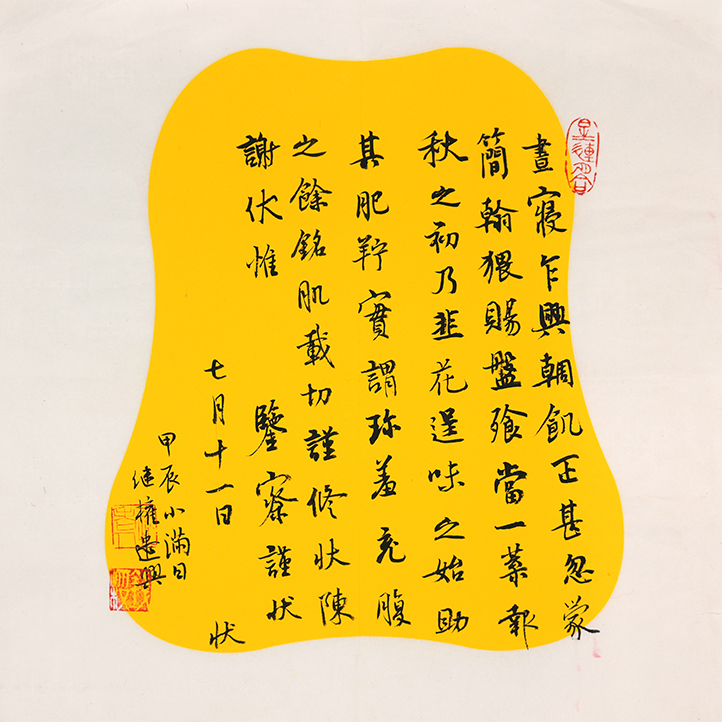 晝寢乍興輖飢正甚忽蒙
簡翰猥賜盤飱當一葉報
秋之初乃韭花逞味之始助
其肥羜實謂珎羞充腹
之餘銘肌載切謹修狀陳
謝伏惟
鑒察謹狀
七月十一日
狀
甲辰小滿日
继權遣興